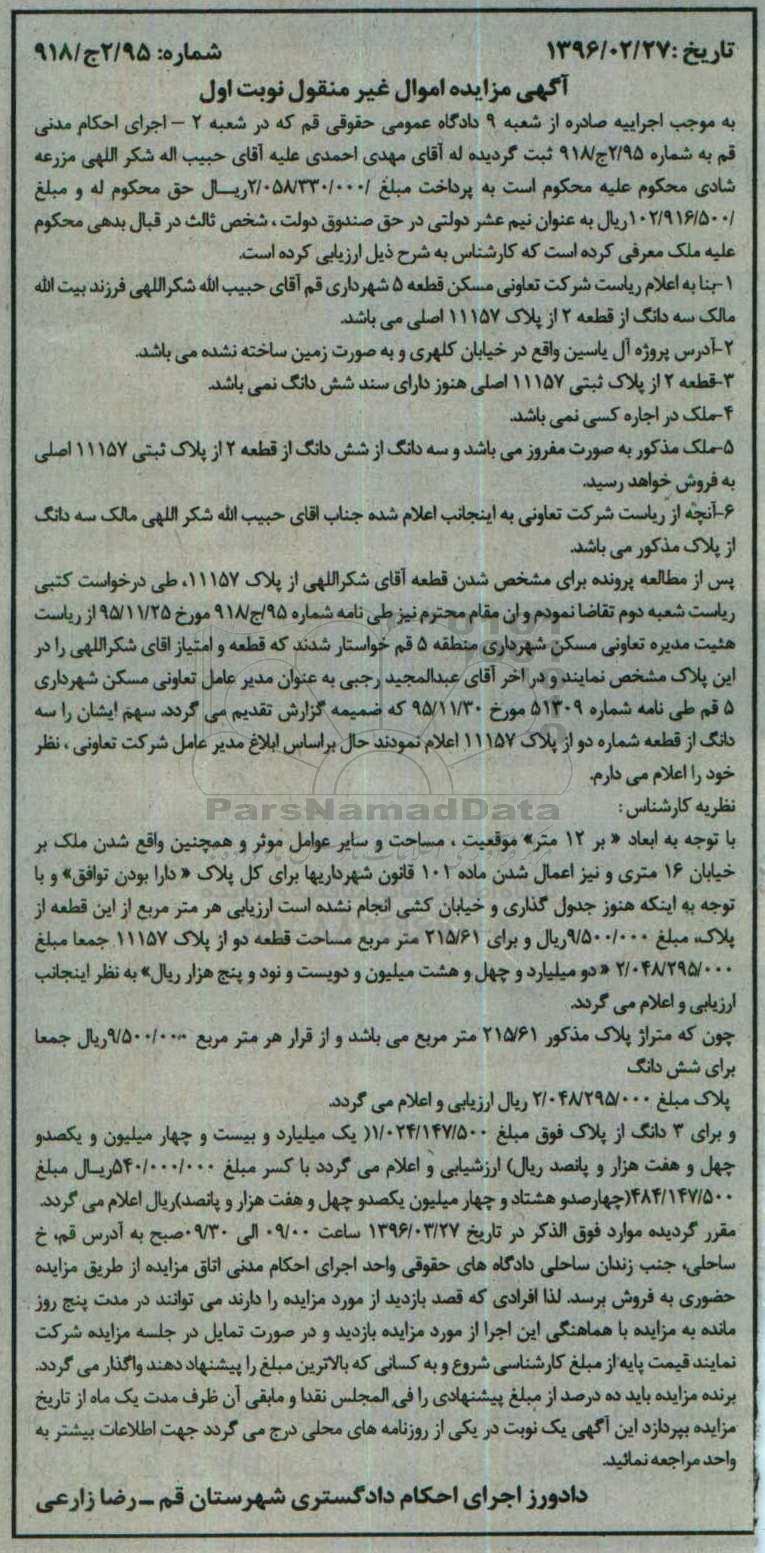 تاریخ :۱۳۹۶/۰۲/۲۷ شماره: ۲/۹۵ج/۹۱۸
آگهی مزایده اموال غیر منقول نوبت اول
به موجب اجراییه صادره از شعبه ۹ دادگاه عمومی حقوقی قم که در شعبه ۲ – اجرای احکام مدنی
قم به شماره ۲/۹۵ج/۹۱۸ ثبت گردیده له آقای مهدی احمدی علیه آقای حبیب اله شکر اللهی مزرعه
شادی محکوم علیه محکوم است به پرداخت مبلغ /۲/۰۵۸/۳۳۰/۰۰۰ریـــال حق محکوم له و مبلغ
/۱۰۲/۹۱۶/۵۰۰ریال به عنوان نیم عشر دولتی در حق صندوق دولت ، شخص ثالث در قبال بدهی محکوم
علیه ملک معرفی کرده است که کارشناس به شرح ذیل ارزیابی کرده است.
۱-بنا به اعلام ریاست شرکت تعاونی مسکن قطعه ۵ شهرداری قم آقای حبیب الله شکراللهی فرزند بیت الله
مالک سه دانگ از قطعه ۲ از پلاک ۱۱۱۵۷ اصلی می باشد.
۲-آدرس پروژه آل یاسین واقع در خیابان کلهری و به صورت زمین ساخته نشده می باشد.
۳-قطعه ۲ از پلاک ثبتی ۱۱۱۵۷ اصلی هنوز دارای سند شش دانگ نمی باشد.
۴-ملک در اجاره کسی نمی باشد.
۵-ملک مذکور به صورت مفروز می باشد و سه دانگ از شش دانگ از قطعه ۲ از پلاک ثبتی ۱۱۱۵۷ اصلی
به فروش خواهد رسید.
۶-آنچه از ریاست شرکت تعاونی به اینجانب اعلام شده جناب اقای حبیب الله شکر اللهی مالک سه دانگ
از پلاک مذکور می باشد.
پس از مطالعه پرونده برای مشخص شدن قطعه آقای شکراللهی از پلاک ۱۱۱۵۷، طی درخواست کتبی
ریاست شعبه دوم تقاضا نمودم و ان مقام محترم نیز طی نامه شماره ۹۵/ج/۹۱۸ مورخ ۹۵/۱۱/۲۵ از ریاست
هئیت مدیره تعاونی مسکن شهرداری منطقه ۵ قم خواستار شدند که قطعه و امتیاز اقای شکراللهی را در
این پلاک مشخص نمایند و در اخر آقای عبدالمجید رجبی به عنوان مدیر عامل تعاونی مسکن شهرداری
۵ قم طی نامه شماره ۵۱۳۰۹ مورخ ۹۵/۱۱/۳۰ که ضمیمه گزارش تقدیم می گردد. سهم ایشان را سه
دانگ از قطعه شماره دو از پلاک ۱۱۱۵۷ اعلام نمودند حال براساس ابلاغ مدیر عامل شرکت تعاونی ، نظر
خود را اعلام می دارم.
نظریه کارشناس :
ParsNamadData
با توجه به ابعاد « بر ۱۲ متر» موقعیت ، مساحت و سایر عوامل موثر و همچنین واقع شدن ملک بر
خیابان ۱۶ متری و نیز اعمال شدن ماده ۱۰۱ قانون شهرداریها برای کل پلاک « دارا بودن توافق» و با
توجه به اینکه هنوز جدول گذاری و خیابان کشی انجام نشده است ارزیابی هر متر مربع از این قطعه از
پلاک، مبلغ ۹/۵۰۰/۰۰۰ریال و برای ۲۱۵/۶۱ متر مربع مساحت قطعه دو از پلاک ۱۱۱۵۷ جمعا مبلغ
۲/۰۴۸/۲۹۵/۰۰۰ « دو میلیارد و چهل و هشت میلیون و دویست و نود و پنج هزار ریال» به نظر اینجانب
ارزیابی و اعلام می گردد.
چون که متراژ پلاک مذکور ۲۱۵/۶۱ متر مربع می باشد و از قرار هر متر مربع ۹/۵۰۰/۰۰۰ریال جمعا
برای شش دانگ
پلاک مبلغ ۲/۰۴۸/۲۹۵/۰۰۰ ریال ارزیابی و اعلام می گردد.
و برای ۳ دانگ از پلاک فوق مبلغ ۱/۰۲۴/۱۴۷/۵۰۰( یک میلیارد و بیست و چهار میلیون و یکصدو
چهل و هفت هزار و پانصد ریال) ارزشیابی و اعلام می گردد با کسر مبلغ ۵۴۰/۰۰۰/۰۰۰ریـال مبلغ
۴۸۴/۱۴۷/۵۰۰(چهارصدو هشتاد و چهار میلیون یکصدو چهل و هفت هزار و پانصد)ریال اعلام می گردد.
مقرر گردیده موارد فوق الذکر در تاریخ ۱۳۹۶/۰۳/۲۷ ساعت ۰۹/۰۰ الی ۰۹/۳۰صبح به آدرس قم، خ
ساحلی، جنب زندان ساحلی دادگاه های حقوقی واحد اجرای احکام مدنی اتاق مزایده از طریق مزایده
حضوری به فروش برسد. لذا افرادی که قصد بازدید از مورد مزایده را دارند می توانند در مدت پنج روز
مانده به مزایده با هماهنگی این اجرا از مورد مزایده بازدید و در صورت تمایل در جلسه مزایده شرکت
نمایند قیمت پایه از مبلغ کارشناسی شروع و به کسانی که بالاترین مبلغ را پیشنهاد دهند واگذار می گردد.
برنده مزایده باید ده درصد از مبلغ پیشنهادی را فی المجلس نقدا و مابقی آن ظرف مدت یک ماه از تاریخ
مزایده بپردازد این آگهی یک نوبت در یکی از روزنامه های محلی درج می گردد جهت اطلاعات بیشتر به
واحد مراجعه نمائید.
دادورز اجرای احکام دادگستری شهرستان قم – رضا زارعی